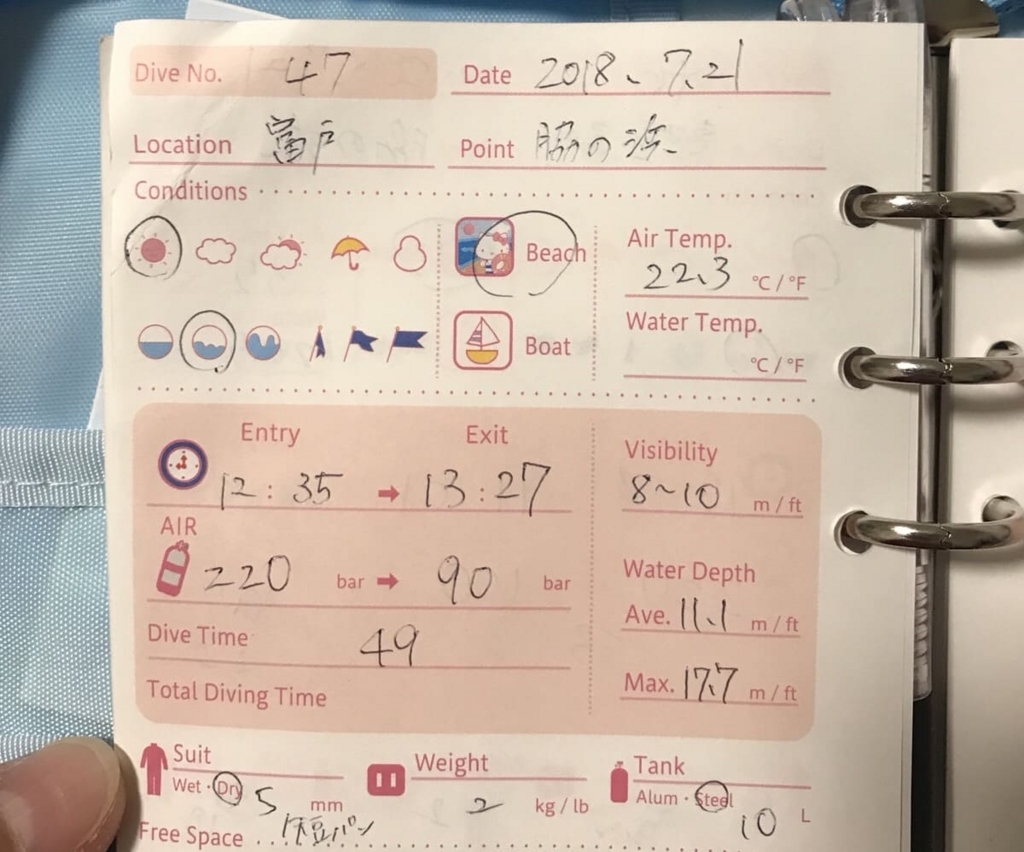 Dive No. 47 Date 2018、7.21
Location 富戸 Point 脇の浜
Conditions
Beach
Air Temp.
22.3 °C / °F
Boat
Water Temp.
°C / °F
Entry Exit
12:35 13:27
Visibility
8~10 m / ft
AIR
220 bar 90 bar
Water Depth
Ave. 11.1 m / ft
Dive Time 49
Max. 17.7 m / ft
Total Diving Time
Suit
Wet · Dry 5 mm
Weight
2 kg / lb
Tank
Alum · Steel 10 L
Free Space